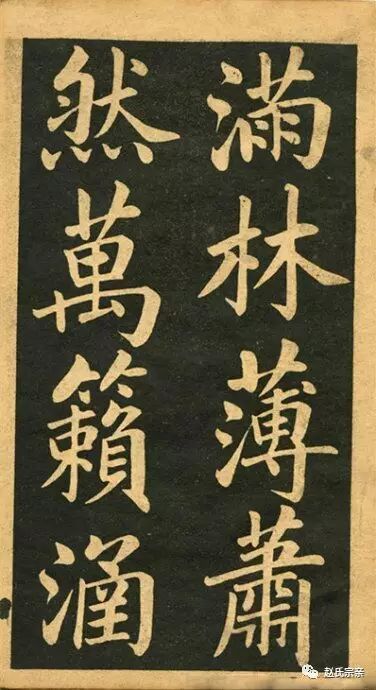 滿林薄蕭
然萬籟涵
赵氏宗亲